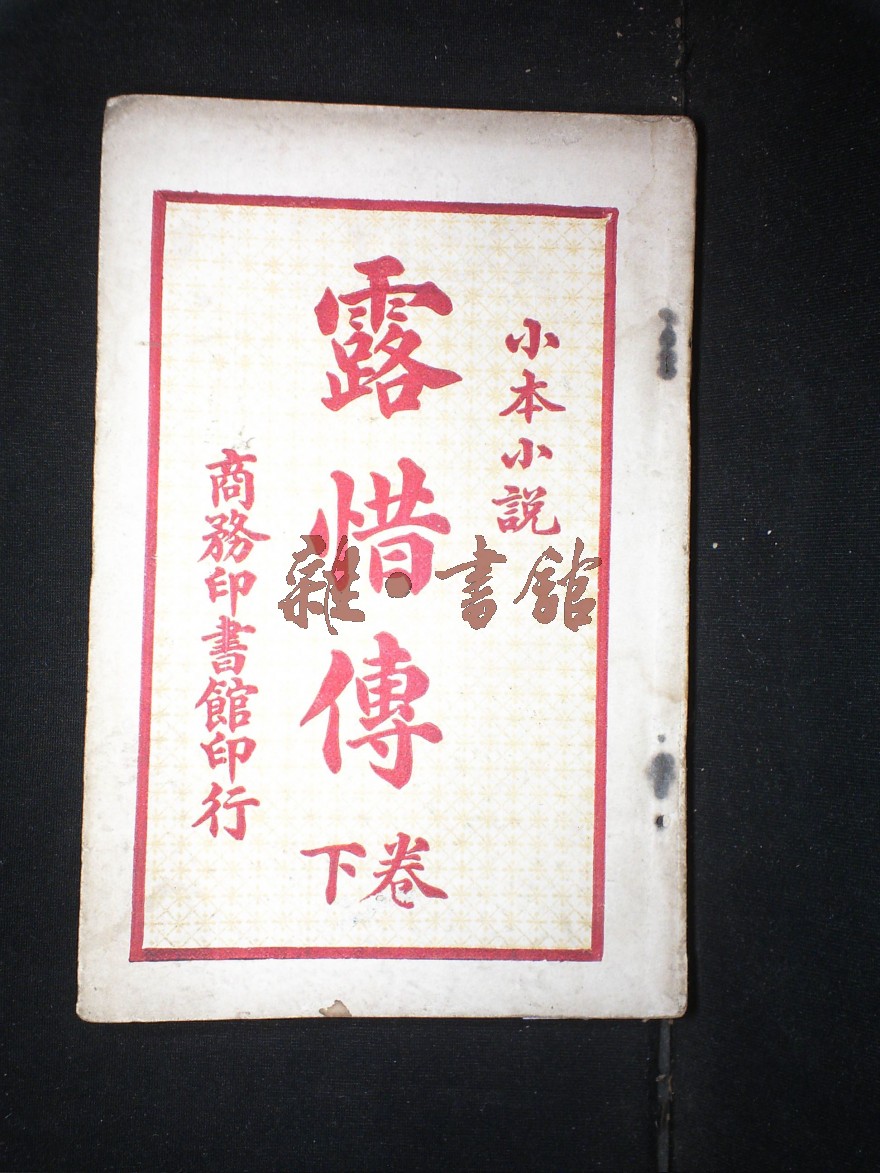 小本小説
露惜傳
卷下
商務印書館印行
雜·書館